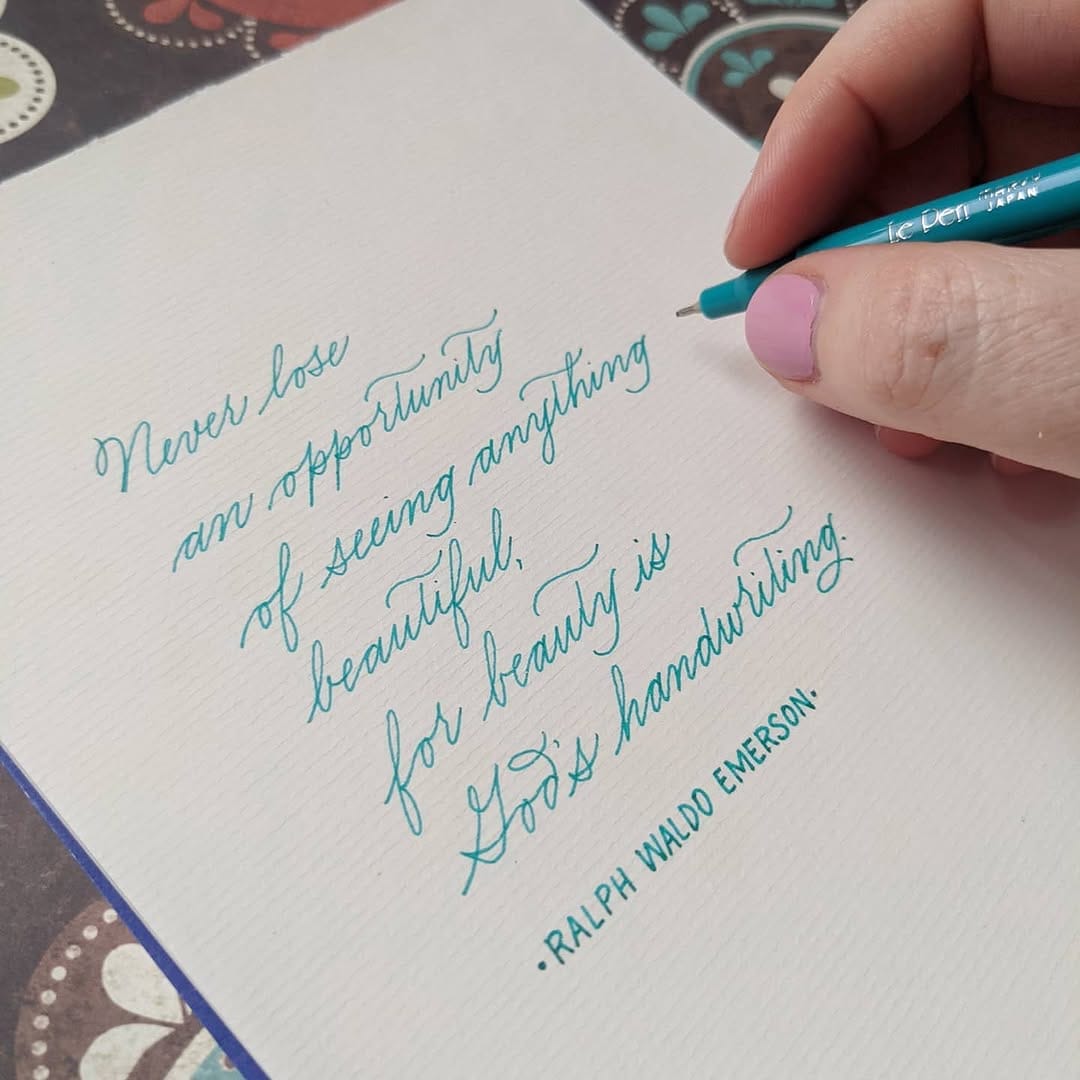 Never lose
an opportunity
of seeing anything
beautiful,
for beauty is
God's handwriting.
·RALPH WALDO EMERSON·
Le Pen MARVY JAPAN